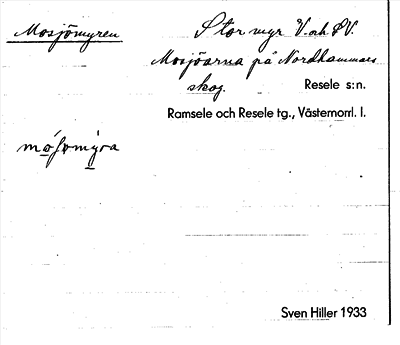 Mosjömyren
Stor myr V. och SV.
Mosjöarna på Nordhammars
skog.
Resele s:n.
Ramsele och Resele tg., Västernorrl. l.
Sven Hiller 1933